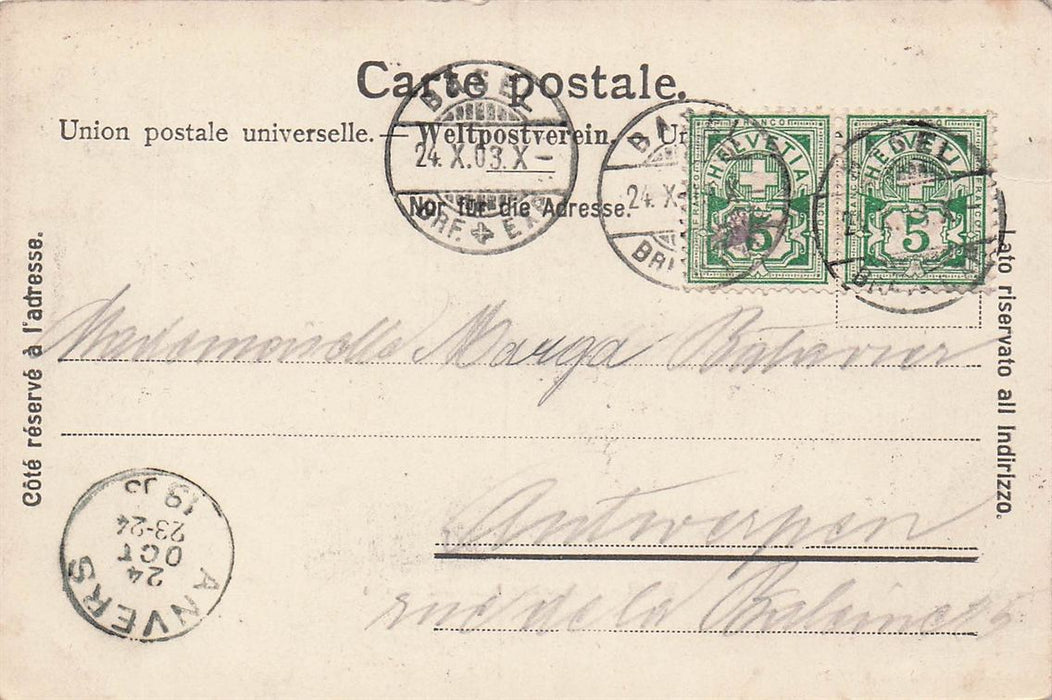 Carte postale.
Union postale universelle. — Weltpostverein.
Nur für die Adresse.
Côté réservé à l'adresse.
Lato riservato all Indirizzo.
BASEL
24.X.03.X–
BRF. EXP.
BASEL
24.X
FRANCO
HELVETIA
5
FRANCO
5
Mademoiselle Marga
Antwerpen
rue de la
ANVERS
24
OCT
23-24
19